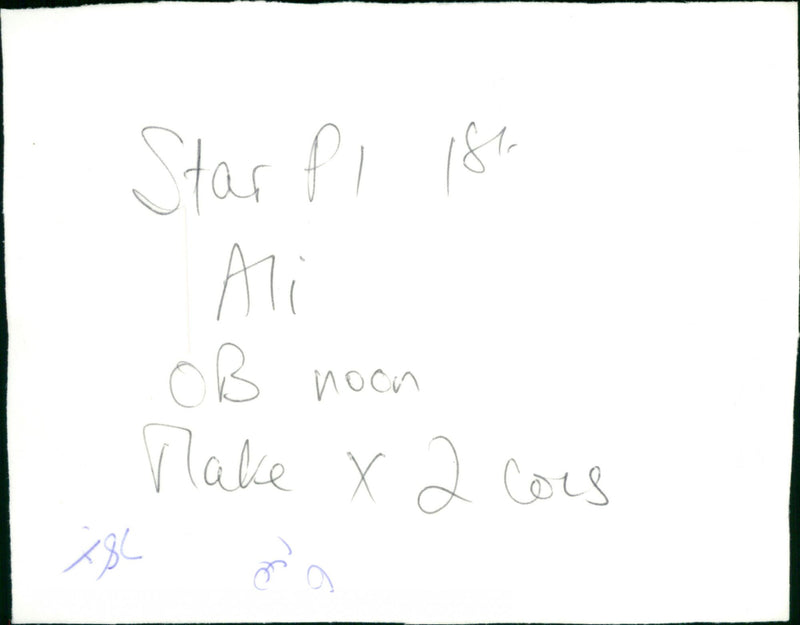 Star P1 1st
Ali
OB noon
Make x 2 cols